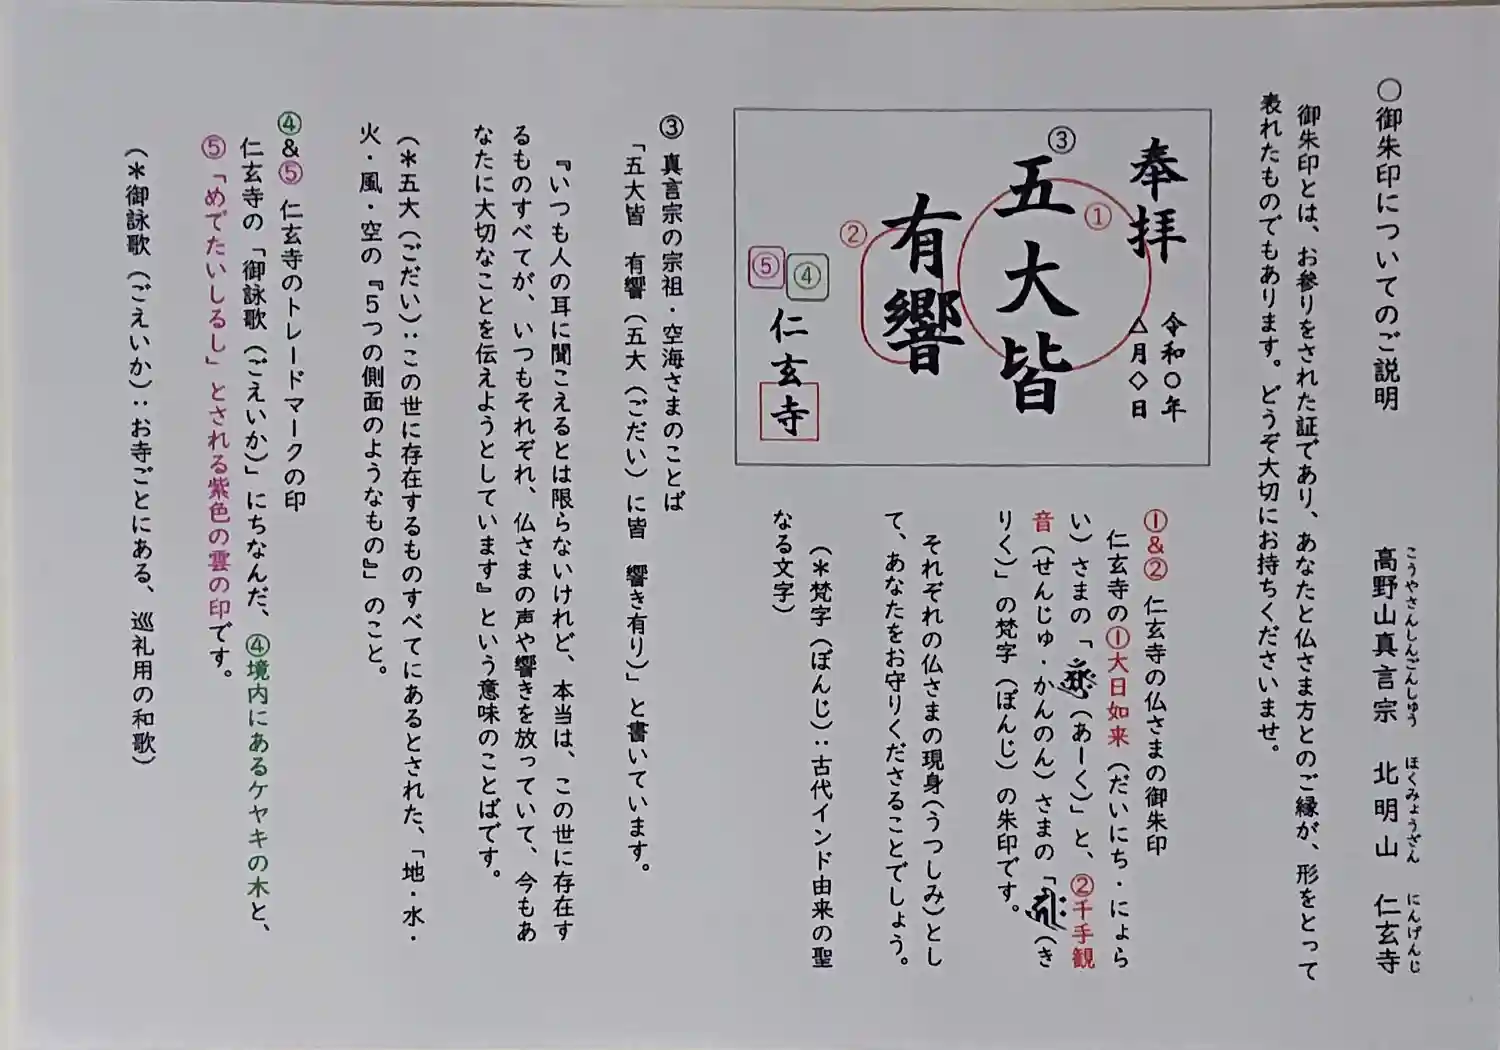 〇御朱印についてのご説明
高野山真言宗　北明山　仁玄寺
こうやさんしんごんしゅう　ほくみょうざん　にんげんじ
御朱印とは、お参りをされた証であり、あなたと仏さま方とのご縁が、形をとって
表れたものでもあります。どうぞ大切にお持ちくださいませ。
奉拝
令和〇年
△月◇日
①
③
五大皆
有響
②
④
⑤
仁玄寺
①&② 仁玄寺の仏さまの御朱印
仁玄寺の①大日如来（だいにち・にょら
い）さまの「（あーく）」と、②千手観
音（せんじゅ・かんのん）さまの「（き
りく）」の梵字（ぼんじ）の朱印です。
それぞれの仏さまの現身（うつしみ）とし
て、あなたをお守りくださることでしょう。
（＊梵字（ぼんじ）：古代インド由来の聖
なる文字）
③ 真言宗の宗祖・空海さまのことば
「五大皆　有響（五大（ごだい）に皆　響き有り）」と書いています。
『いつも人の耳に聞こえるとは限らないけれど、本当は、この世に存在す
るものすべてが、いつもそれぞれ、仏さまの声や響きを放っていて、今もあ
なたに大切なことを伝えようとしています』という意味のことばです。
（＊五大（ごだい）：この世に存在するものすべてにあるとされた、「地・水・
火・風・空の『５つの側面のようなもの』」のこと。
④&⑤ 仁玄寺のトレードマークの印
仁玄寺の「御詠歌（ごえいか）」にちなんだ、④境内にあるケヤキの木と、
⑤「めでたいしるし」とされる紫色の雲の印です。
（＊御詠歌（ごえいか）：お寺ごとにある、巡礼用の和歌）